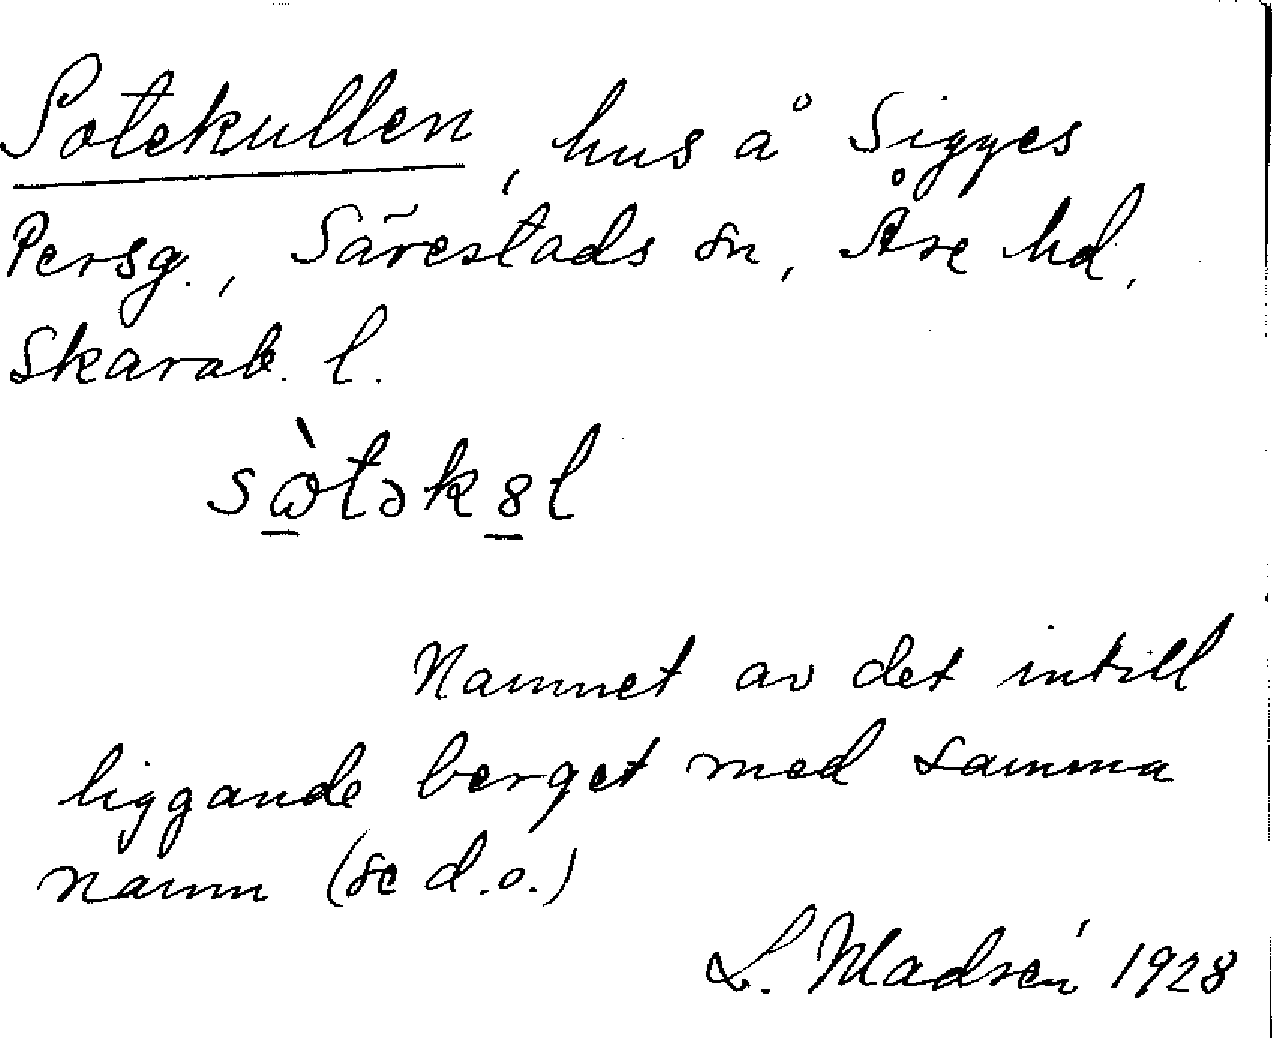 Sotekullen, hus å Sigges
Persg., Särestads sn, Åse hd,
Skarab. l.
sὼtəkȣl
Namnet av det intill
liggande berget med samma
namn (se d.o.)
L. Madsén 1928